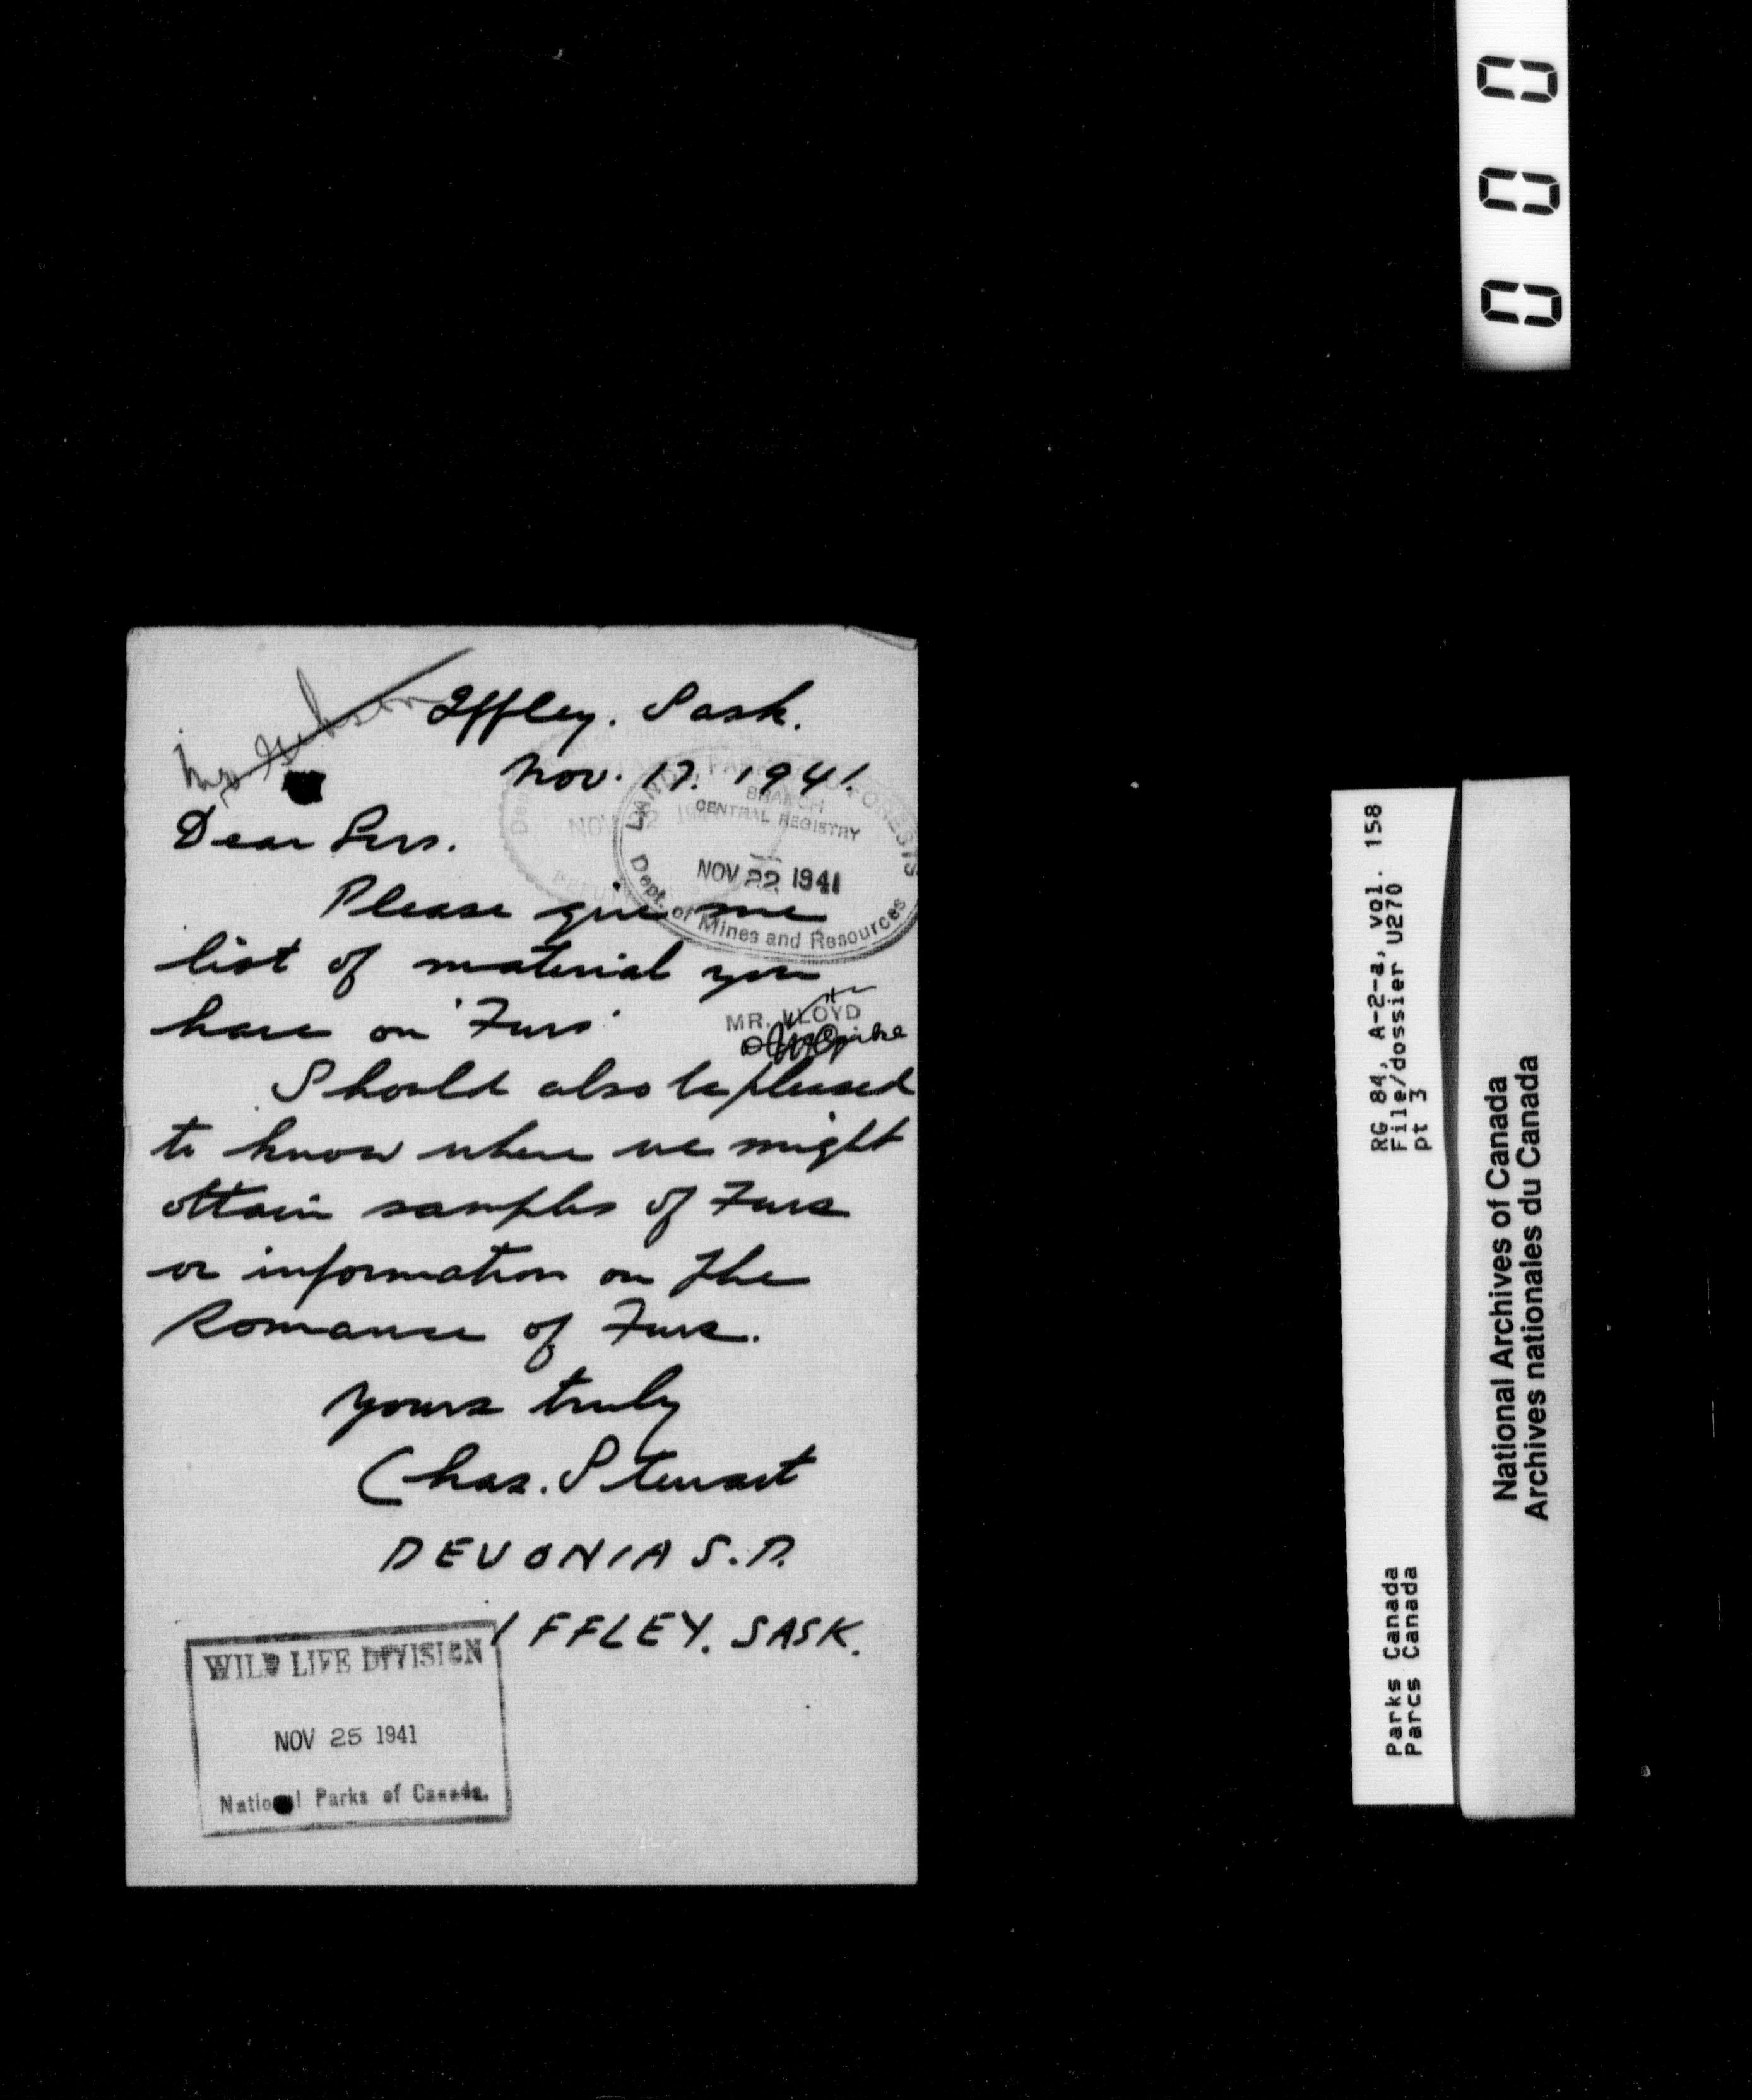 Iffley. Sask.
Nov. 17. 1941.
Dear Sirs.
Please give me
list of material you
have on 'Furs'
Should also be pleased
to know where we might
obtain samples of Furs
or information on The
Romance of Furs.
Yours truly
Chas. Stewart
DEVONIA S.D.
IFFLEY. SASK.
LANDS, PARKS AND FORESTS
BRANCH
CENTRAL REGISTRY
NOV 22 1941
Dept. of Mines and Resources
MR. LLOYD
WILD LIFE DIVISION
NOV 25 1941
National Parks of Canada.
000
RG 84, A-2-a, vol. 158
File/dossier U270
pt 3
Parks Canada
Parcs Canada
National Archives of Canada
Archives nationales du Canada